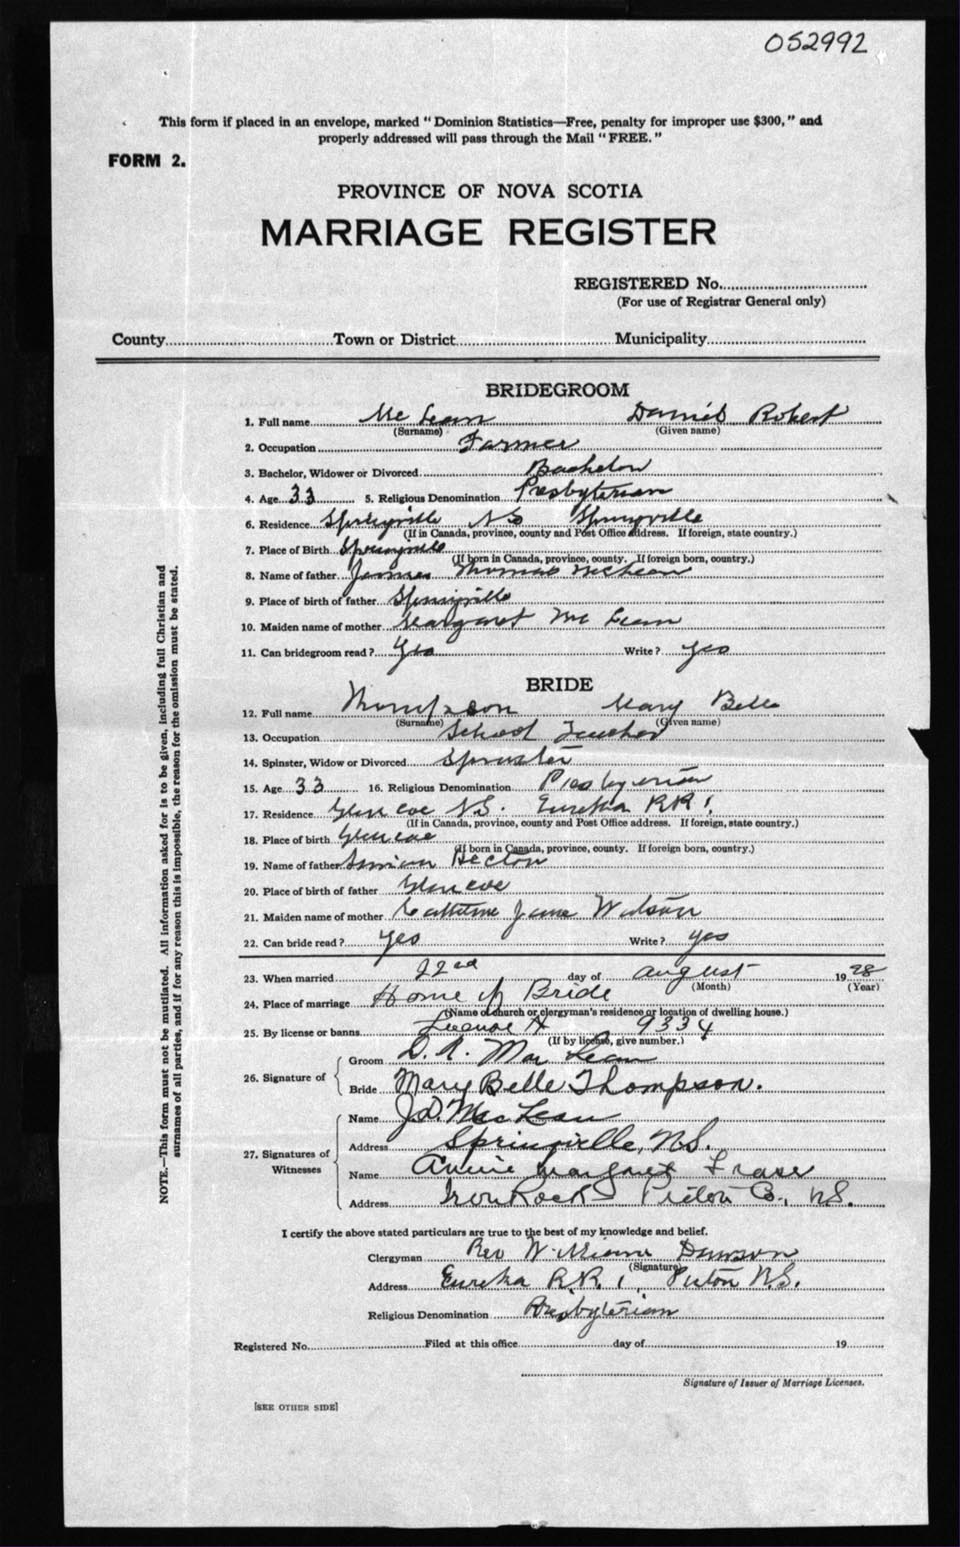 052992
This form if placed in an envelope, marked "Dominion Statistics—Free, penalty for improper use $300," and
properly addressed will pass through the Mail "FREE."
FORM 2.
PROVINCE OF NOVA SCOTIA
MARRIAGE REGISTER
REGISTERED No.
(For use of Registrar General only)
County Town or District Municipality
BRIDEGROOM
1. Full name Mc Lean Daniel Robert
(Surname) (Given name)
2. Occupation Farmer
3. Bachelor, Widower or Divorced Bachelor
4. Age 33 5. Religious Denomination Presbyterian
6. Residence Springville NS Springville
(If in Canada, province, county and Post Office address. If foreign, state country.)
7. Place of Birth Springville
(If born in Canada, province, county. If foreign born, country.)
8. Name of father James Thomas McLean
9. Place of birth of father Springville
10. Maiden name of mother Margaret Mc Lean
11. Can bridegroom read? Yes Write? yes
BRIDE
12. Full name Thompson Mary Belle
(Surname) (Given name)
13. Occupation School Teacher
14. Spinster, Widow or Divorced Spinster
15. Age 33 16. Religious Denomination Presbyterian
17. Residence Glencoe N.S. Eureka R.R 1.
(If in Canada, province, county and Post Office address. If foreign, state country.)
18. Place of birth Glencoe
(If born in Canada, province, county. If foreign born, country.)
19. Name of father
20. Place of birth of father Glencoe
21. Maiden name of mother Jane
22. Can bride read? yes Write? yes
23. When married 22nd day of august 1928
(Month) (Year)
24. Place of marriage Home of Bride
(Name of church or clergyman's residence or location of dwelling house.)
25. By license or banns License A 9334
(If by license, give number.)
26. Signature of Groom D. R. Mac Lean
Bride Mary Belle Thompson.
27. Signatures of Witnesses Name J.D. MacLean
Address Springville, N.S.
Name Annie Margaret Fraser
Address Iron Rock Pictou Co., N.S.
I certify the above stated particulars are true to the best of my knowledge and belief.
Clergyman Rev William Dawson
(Signature)
Address Eureka R.R. 1, Pictou N.S.
Religious Denomination Presbyterian
Registered No. Filed at this office day of 19
Signature of Issuer of Marriage Licenses.
[SEE OTHER SIDE]
NOTE.—This form must not be mutilated. All information asked for is to be given, including full Christian and
surnames of all parties, and if for any reason this is impossible, the reason for the omission must be stated.